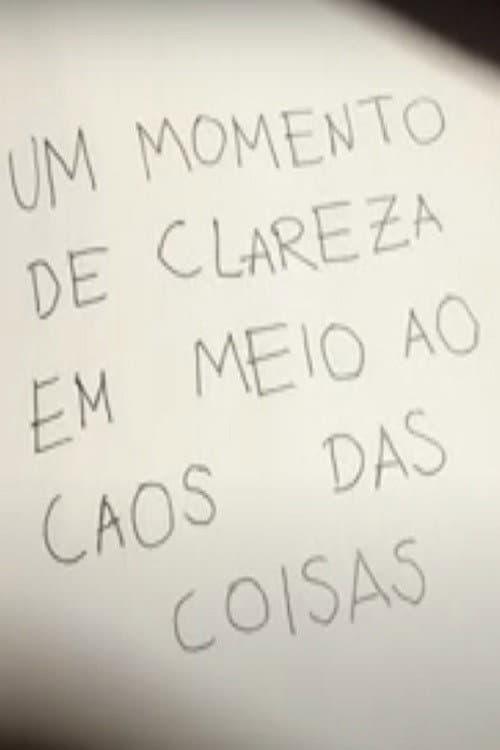 UM MOMENTO
DE CLAREZA
EM MEIO AO
CAOS DAS
COISAS